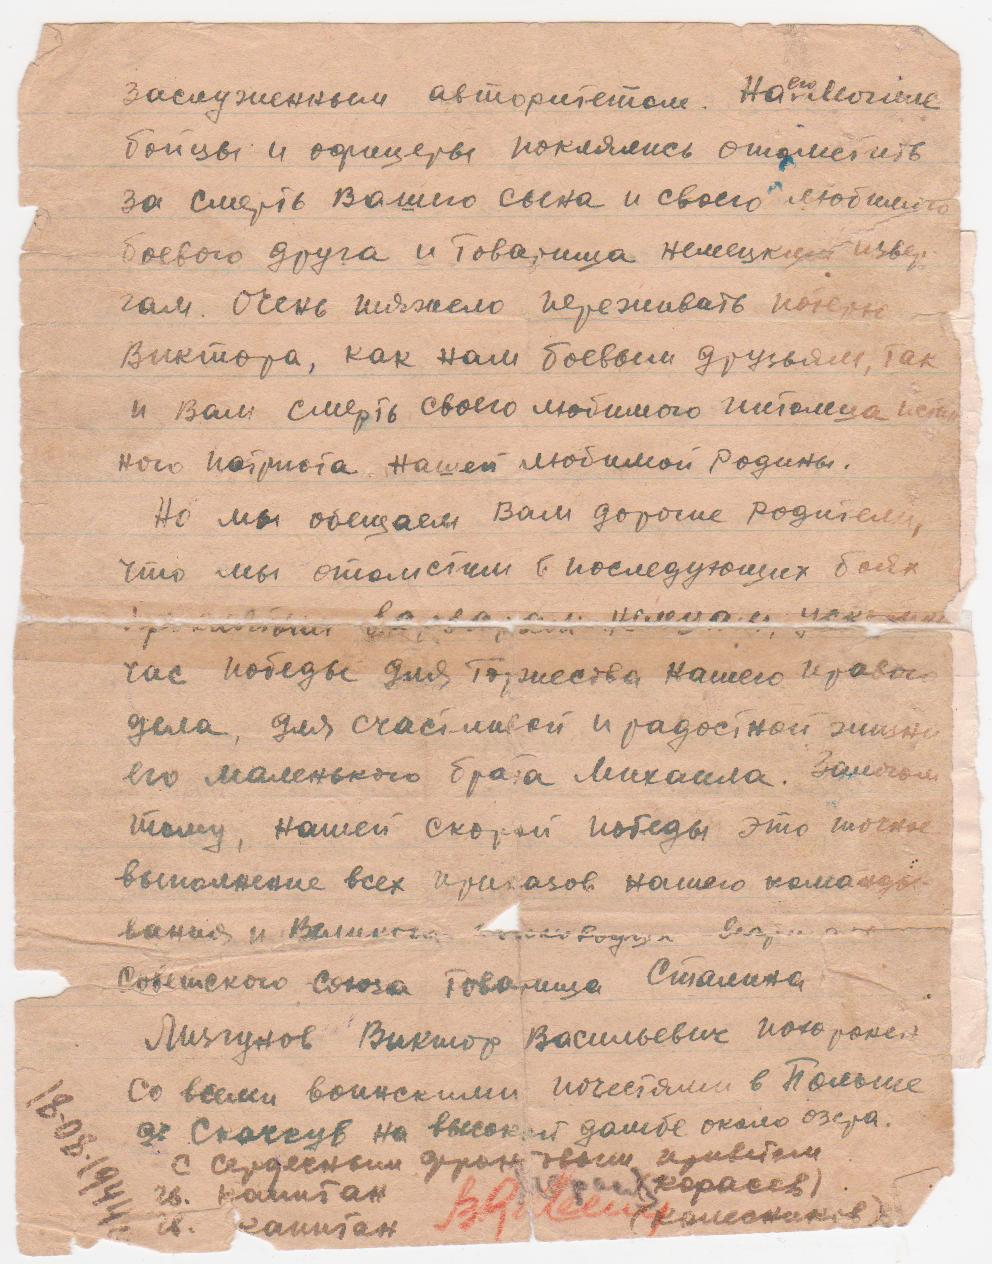 заслуженным авторитетом. На его могиле
бойцы и офицеры поклялись отомстить
за смерть Вашего сына и своего любимого
боевого друга и товарища немецким извер-
гам. Очень тяжело переживать потерю
Виктора, как нам боевым друзьям, так
и Вам смерть своего любимого питомца
ного патриота нашей любимой Родины.
Но мы обещаем Вам дорогие родители,
что мы отомстим в последующих боях
варварам немцам,
час победы для торжества нашего правого
дела, для счастливой и радостной жизни
его маленького брата Михаила. Залогом
тому, нашей скорой победы это точное
выполнение всех приказов нашего командо-
вания и Великого полководца
Советского Союза товарища Сталина
Лизгунов Виктор Васильевич похоронен
со всеми воинскими почестями в Польше
Скочкув на высокой дамбе около озера.
С сердечным фронтовым приветом
гв. капитан (Карасев)
гв. капитан (Колесников)
18-08-1944